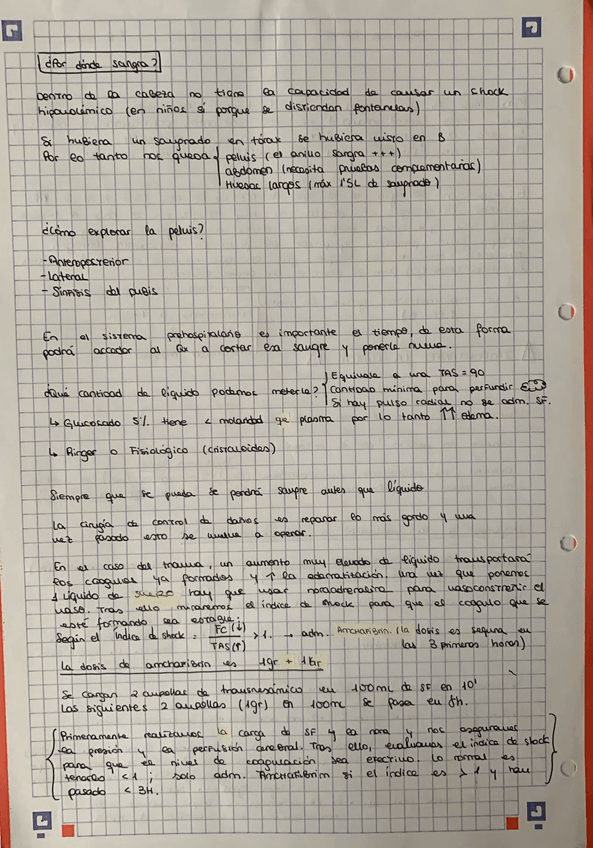 ¿Por dónde sangra?
Dentro de la cabeza no tiene la capacidad de causar un shock
hipovolémico (en niños sí porque se distiendan fontanelas)
Si hubiera un sangrado en tórax se hubiera visto en B
Por lo tanto nos queda pelvis (el anillo sangra +++)
abdomen (necesita pruebas complementarias)
Huesos largos (máx 1'5L de sangrado)
¿Cómo explorar la pelvis?
- Anteroposterior
- Lateral
- Sínfisis del pubis
En el sistema prehospitalario es importante el tiempo, de esta forma
podrá acceder al Qx a cortar esa sangre y ponerle nueva.
Equivale a una TAS = 90
¿Qué cantidad de líquido podemos meterle? Cantidad mínima para perfundir
Si hay pulso radial no se adm. SF.
↳ Glucosado 5% tiene < molaridad que plasma por lo tanto ↑↑ edema.
↳ Ringer o Fisiológico (cristaloides)
Siempre que se pueda se pondrá sangre antes que líquido
La cirugía de control de daños es reparar lo más gordo y una
vez pasado esto se vuelve a operar.
En el caso del trauma, un aumento muy elevado de líquido transportará
los coágulos ya formados y ↑ la edematización. Una vez que ponemos
1 líquido de suero hay que usar noradrenalina para vasoconstreñir el
vaso. Tras ello miraremos el índice de shock para que el coágulo que se
esté formando sea estable.
Según el índice de shock = FC (↓) / TAS (↑) > 1. → adm. Amchafibrin. (la dosis es segura en
las 3 primeras horas)
La dosis de amchafibrin es 1gr + 1gr
Se cargan 2 ampollas de tranexámico en 100mL de SF en 10'
Las siguientes 2 ampollas (1gr) en 100mL se pasa en 8h.
Primeramente realizamos la carga de SF y la nora y nos aseguramos
la presión y la perfusión cerebral. Tras ello, evaluamos el índice de shock
para que el nivel de coagulación sea efectivo. Lo normal es
tenerlo < 1 ; solo adm. Amchafibrin si el índice es > 1 y han
pasado < 3H.